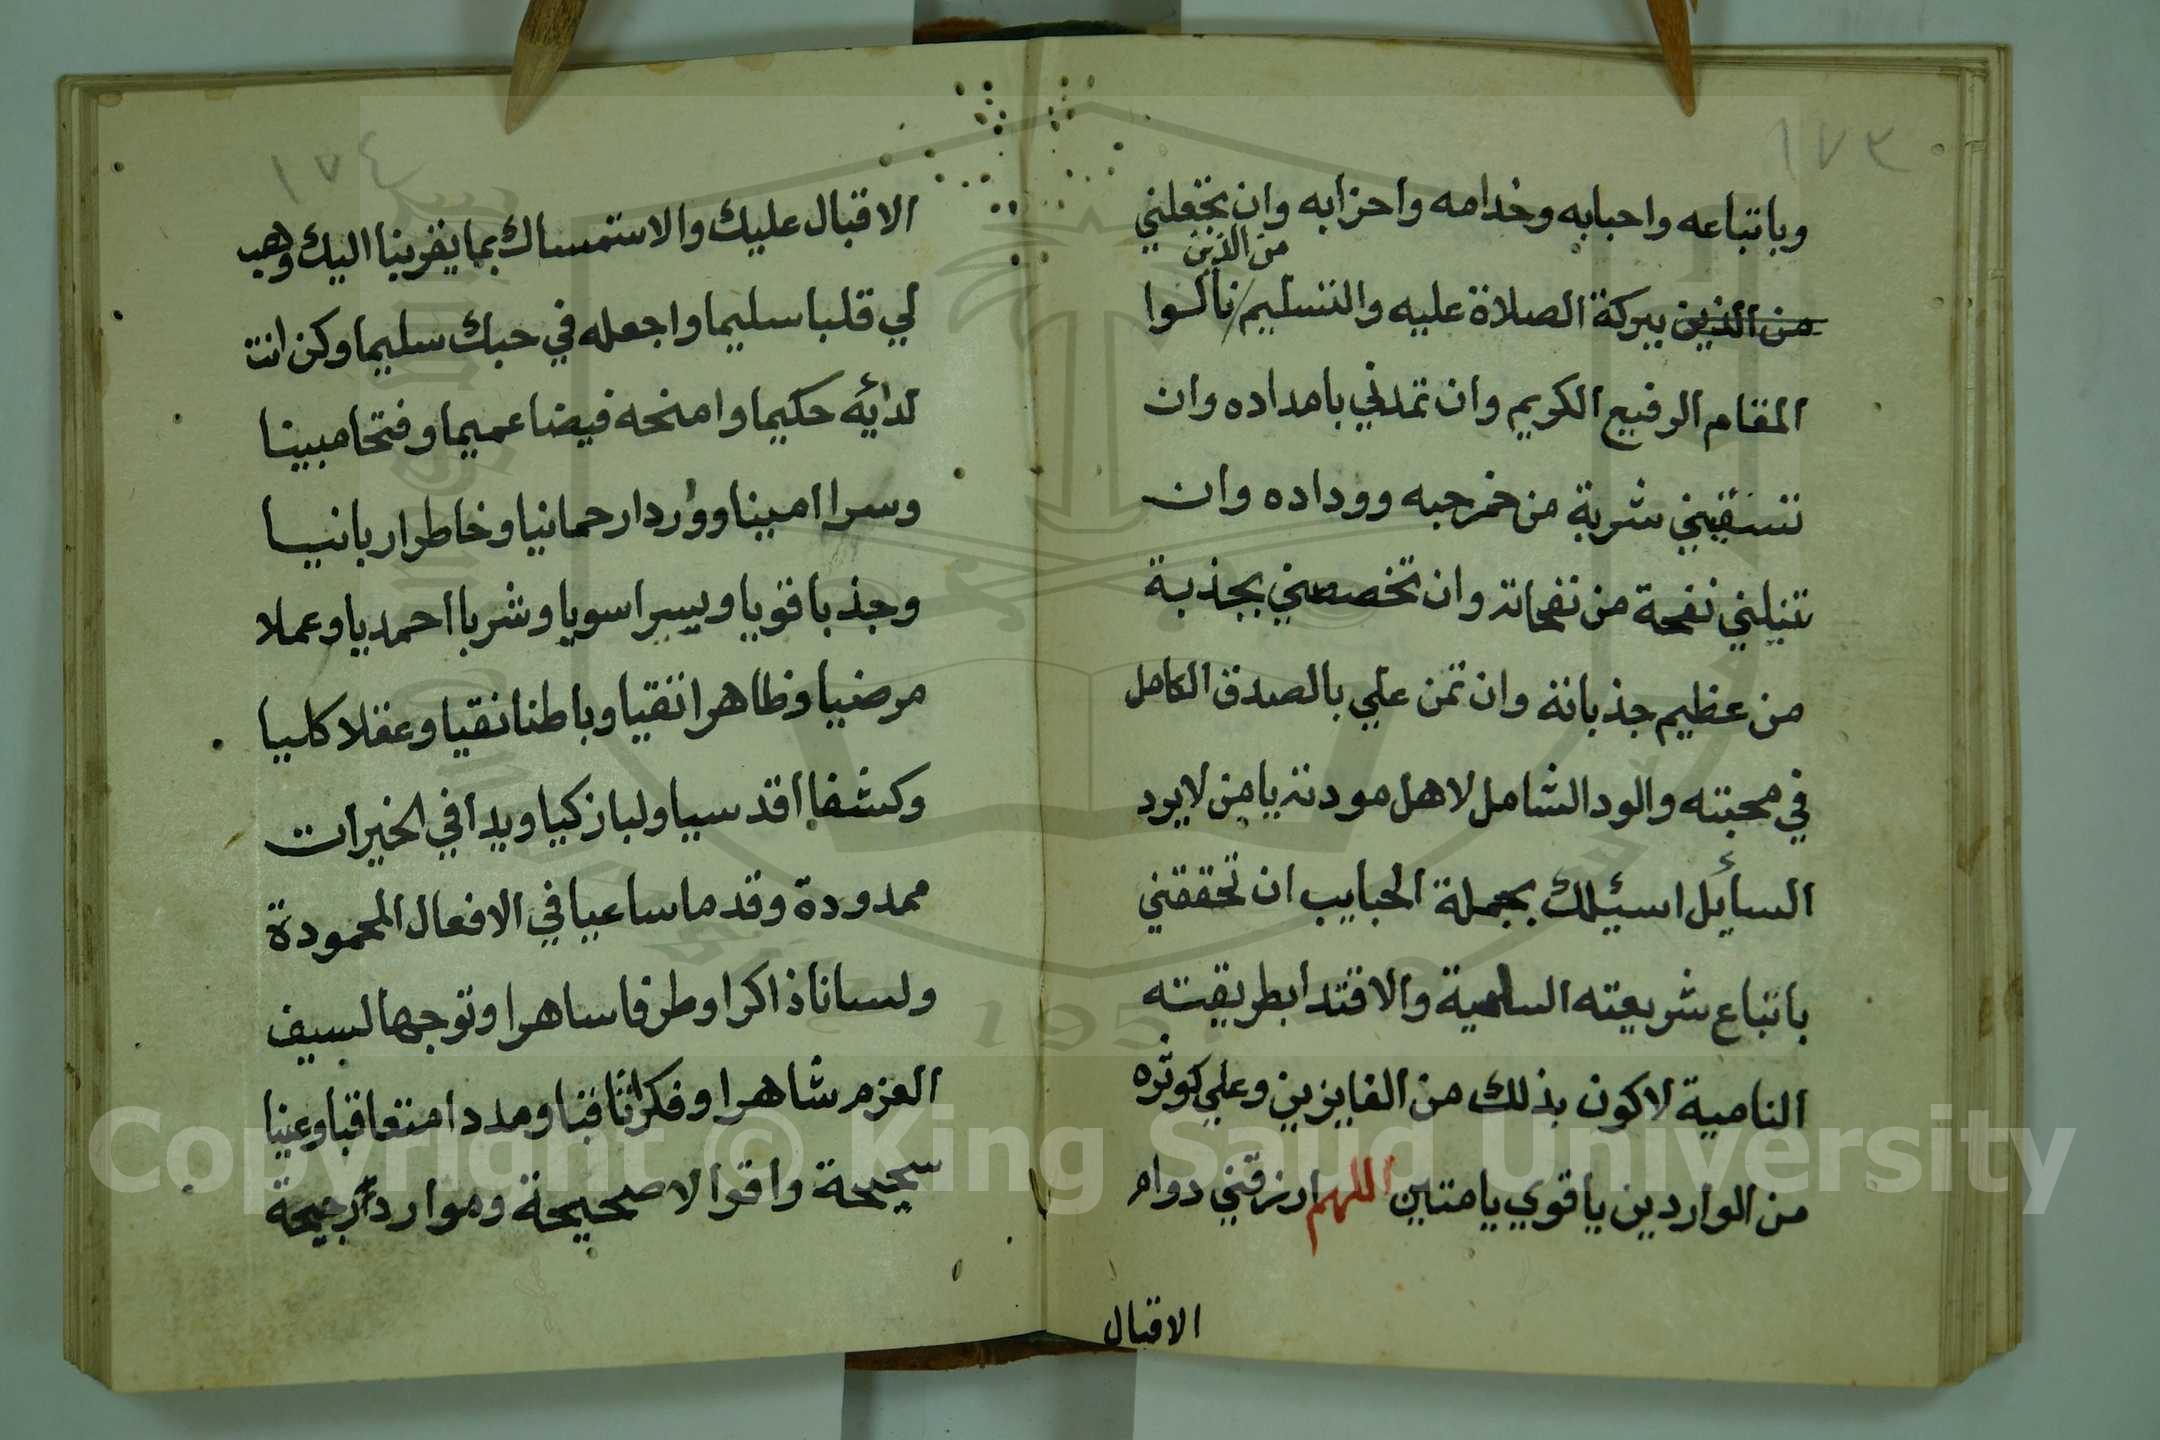 ١٧٣
وباتباعه واحبابه وخدامه واحزابه وان تجعلني
من الذين
من الذين ببركة الصلاة عليه والتسليم / نالوا
المقام الرفيع الكريم وان تمدني بامداده وان
تسقيني شربة من خمر حبه ووداده وان
تنيلني نفحة من نفحاته وان تخصصني بجذبة
من عظيم جذباته وان تمن علي بالصدق الكامل
في محبته والود الشامل لاهل مودته يا من لا يرد
السائل اسئلك بجملة الحبايب ان تحققني
باتباع شريعته السامية والاقتدا بطريقته
النامية لاكون بذلك من الفايزين وعلي كوثره
من الواردين يا قوي يا متين اللهم ارزقني دوام
الاقبال
١٧٤
الاقبال عليك والاستمساك بما يقربنا اليك وهب
لي قلبا سليما واجعله في حبك سليما وكن انت
لدائه حكيما وامنحه فيضا عميما وفتحا مبينا
وسرا امينا وواردا رحمانيا وخاطرا ربانيا
وجذبا قويا ويسرا سويا وشربا احمديا وعملا
مرضيا وظاهرا تقيا وباطنا نقيا وعقلا كليا
وكشفا اقدسيا ولبا زكيا ويدا في الخيرات
ممدودة وقدما ساعيا في الافعال المحمودة
ولسانا ذاكرا وطرفا ساهرا وتوجها لسيف
العزم شاهرا وفكرا ثاقبا ومددا متعاقبا وعينا
سحيحة واقوالا صحيحة وموارد رجيحة
Copyright © King Saud University
1957